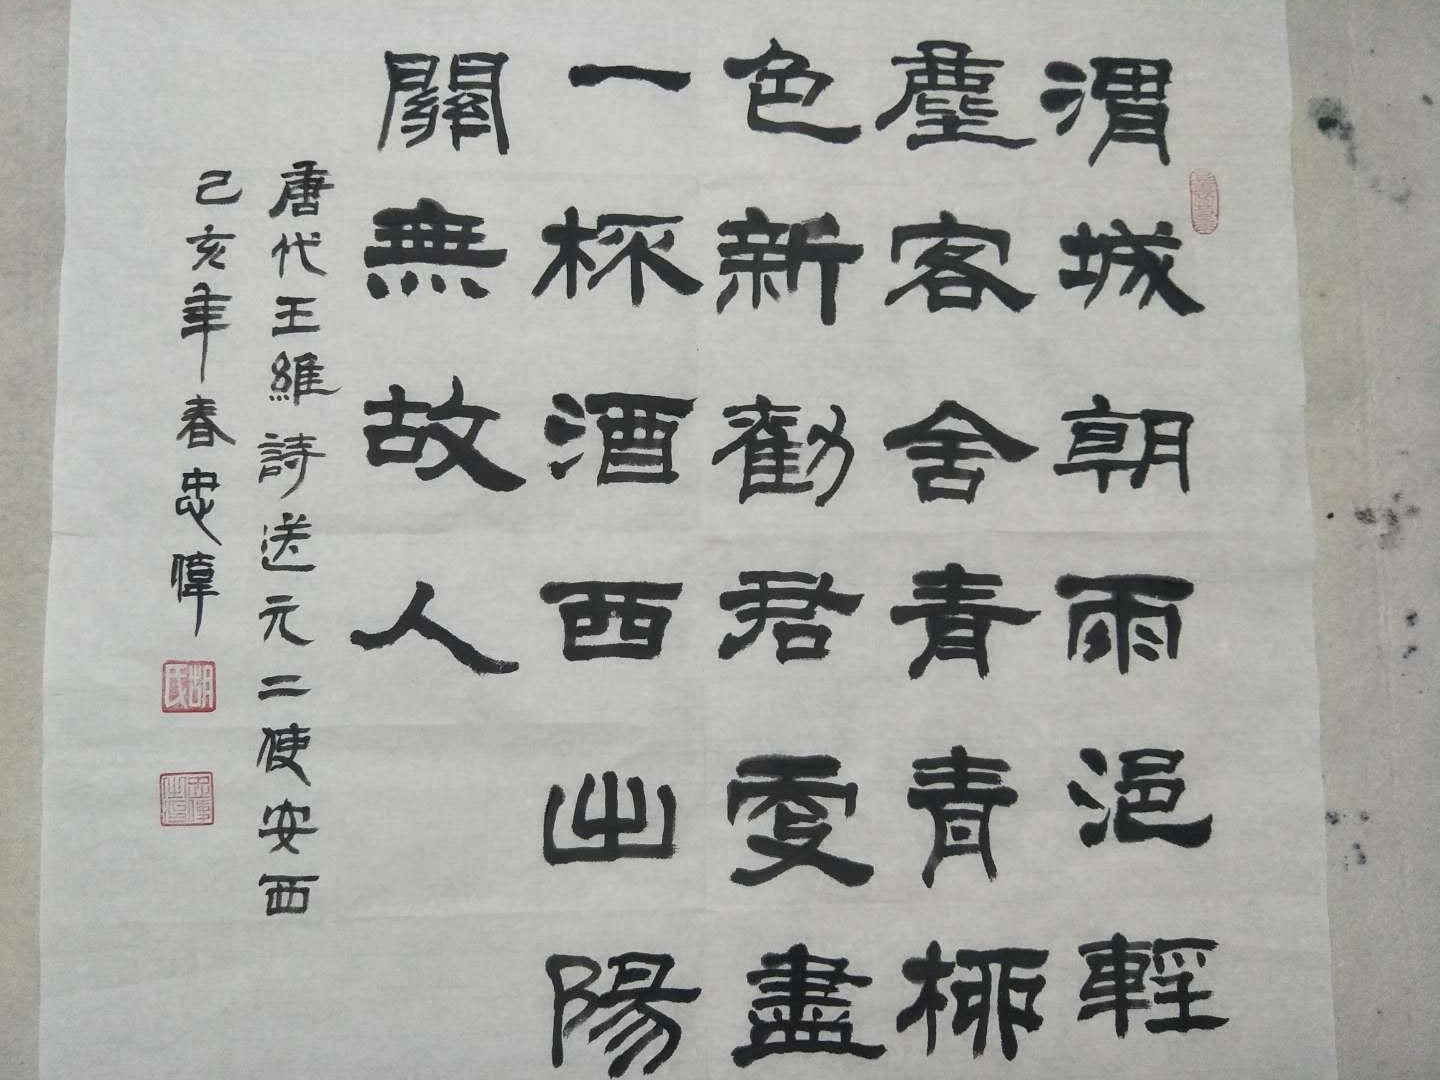 渭城朝雨浥輕
塵客舍青青柳
色新勸君更盡
一杯酒西出陽
關無故人
唐代王維詩送元二使安西
己亥年春忠偉
胡氏